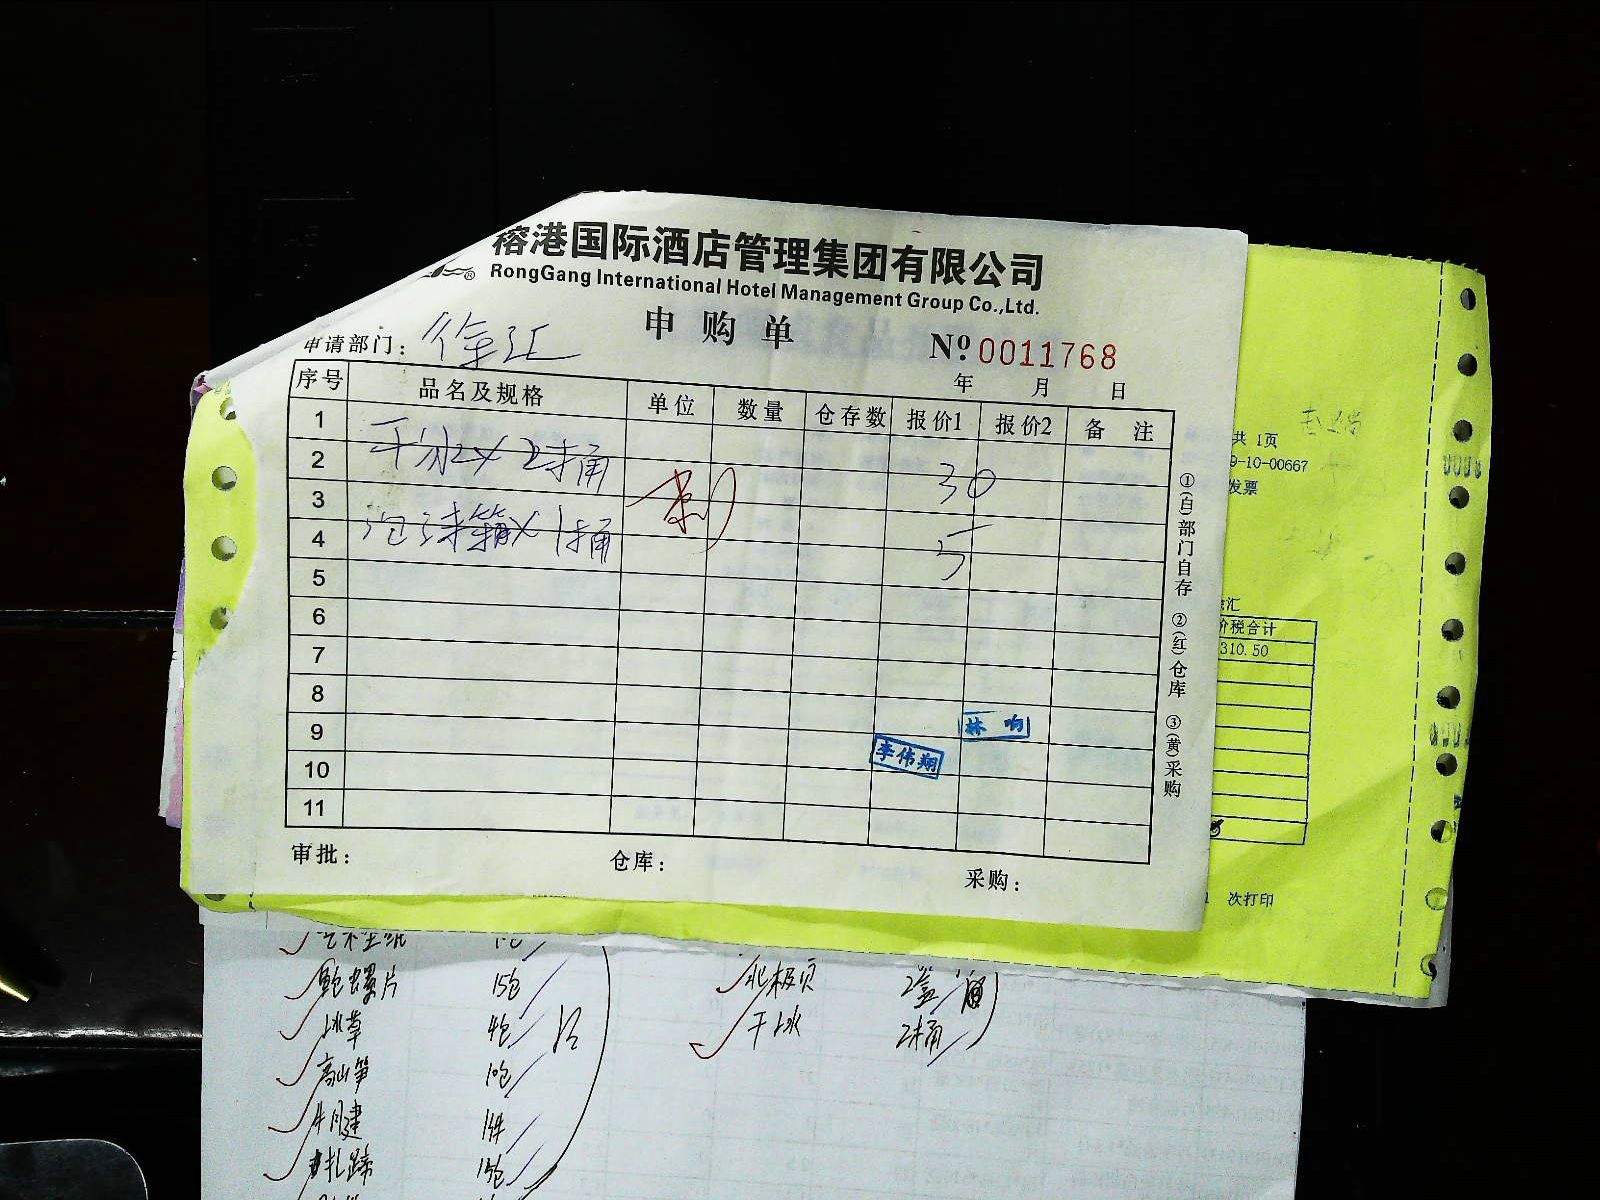 榕港国际酒店管理集团有限公司
RongGang International Hotel Management Group Co.,Ltd.
申购单
№ 0011768
申请部门：
年 月 日
序号 品名及规格 单位 数量 仓存数 报价1 报价2 备 注
1
2 干冰×2桶 30
3
4 泡沫箱×1桶 5
5
6
7
8
9 林响
10 李伟翔
11
审批： 仓库： 采购：
①(白)部门自存 ②(红)仓库 ③(黄)采购
共 1页
9-10-00667
发票
价税合计
310.50
次打印
鲍螺片 15包
冰草 4包
高山笋 10包
牛月建 1件
扎蹄 15包
北极贝 2盒
干冰 2桶